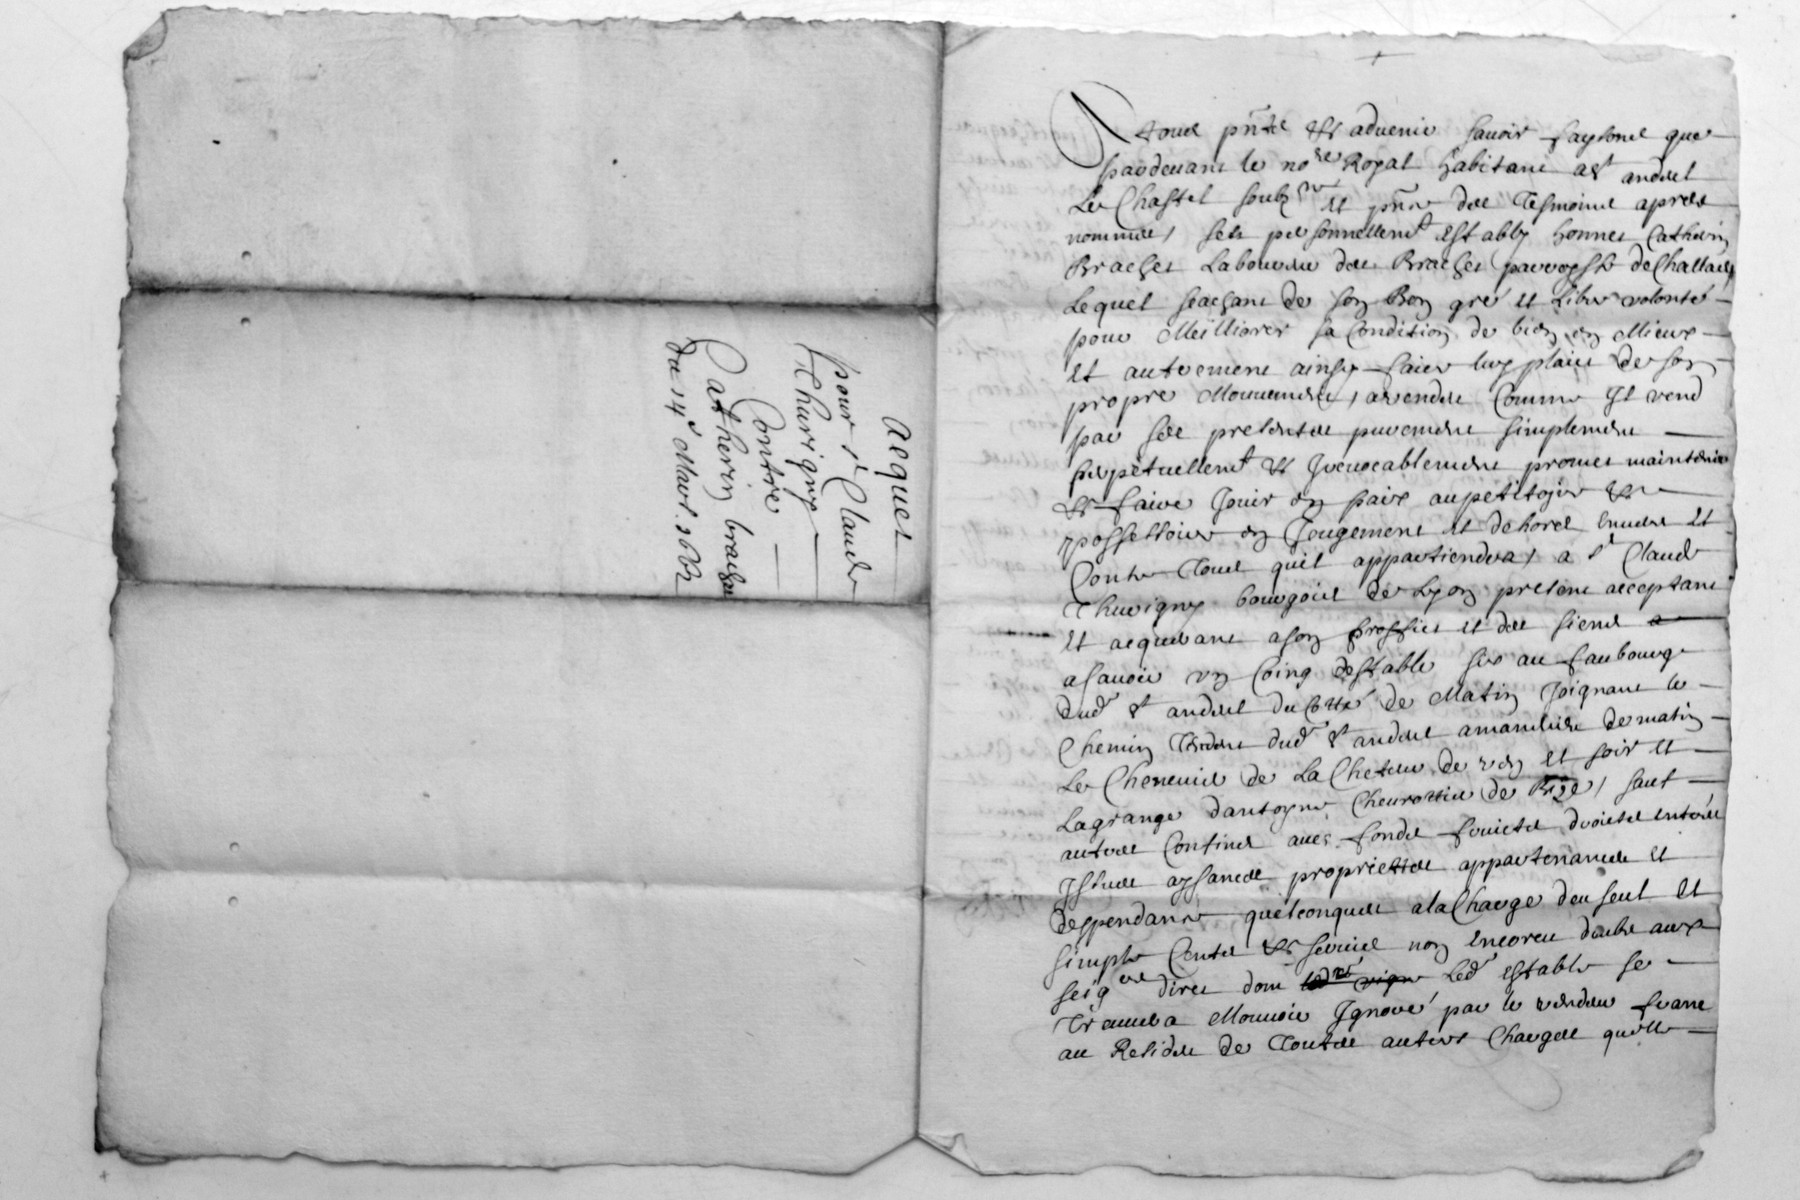 Acquet
pour sr Claude
Thurigny
Contre
Catherin brachet
du 14e Mars 1662
A tous pnts et advenir scavoir faysons que
pardevant le nore Royal habitant a st andrel
Le Chastel soubzne et pnce des Tesmoins apres
nommes, sest personnellemt estably honnet Catherin
Brachet Laboureur de Brachet parroysse de
Lequel scachant de son Bon gré et Libre volonté
pour Meilliorer sa Condition de bien en Mieux
et autrement ainsy faire luy plait de son
propre Mouvement, a vendu Comme Il vend
par ses presentes purement simplement
perpetuellemt et Irevocablement promet maintenir
et faire Jouir en paix au petitoire et
possessoire en Jougement et dehors envers et
Contre Tous quil appartiendra, a sr Claude
Thurigny bourgois de Lyon present acceptant
et acquerant a son proffict et des siens
a scavoir un Coing destable size au faubourg
dud st andrel du Costé de Matin Joignant le
Chemin Tendant dud st andrel a de matin
Le Chenevier de La et soir et
La grange dantoyne de, sauf
autres Confins avec fonds fruicts droicts entrées
Issues aysances proprietés appartenances et
deppendance quelconques a la Charge du seul et
simple Cents et servis non encoreu doubz aux
seigne direct dont led estable se
Trouvera Mouvoir Ignoré par le vendeur franc
au Residu de Toutes autres Charges quelle